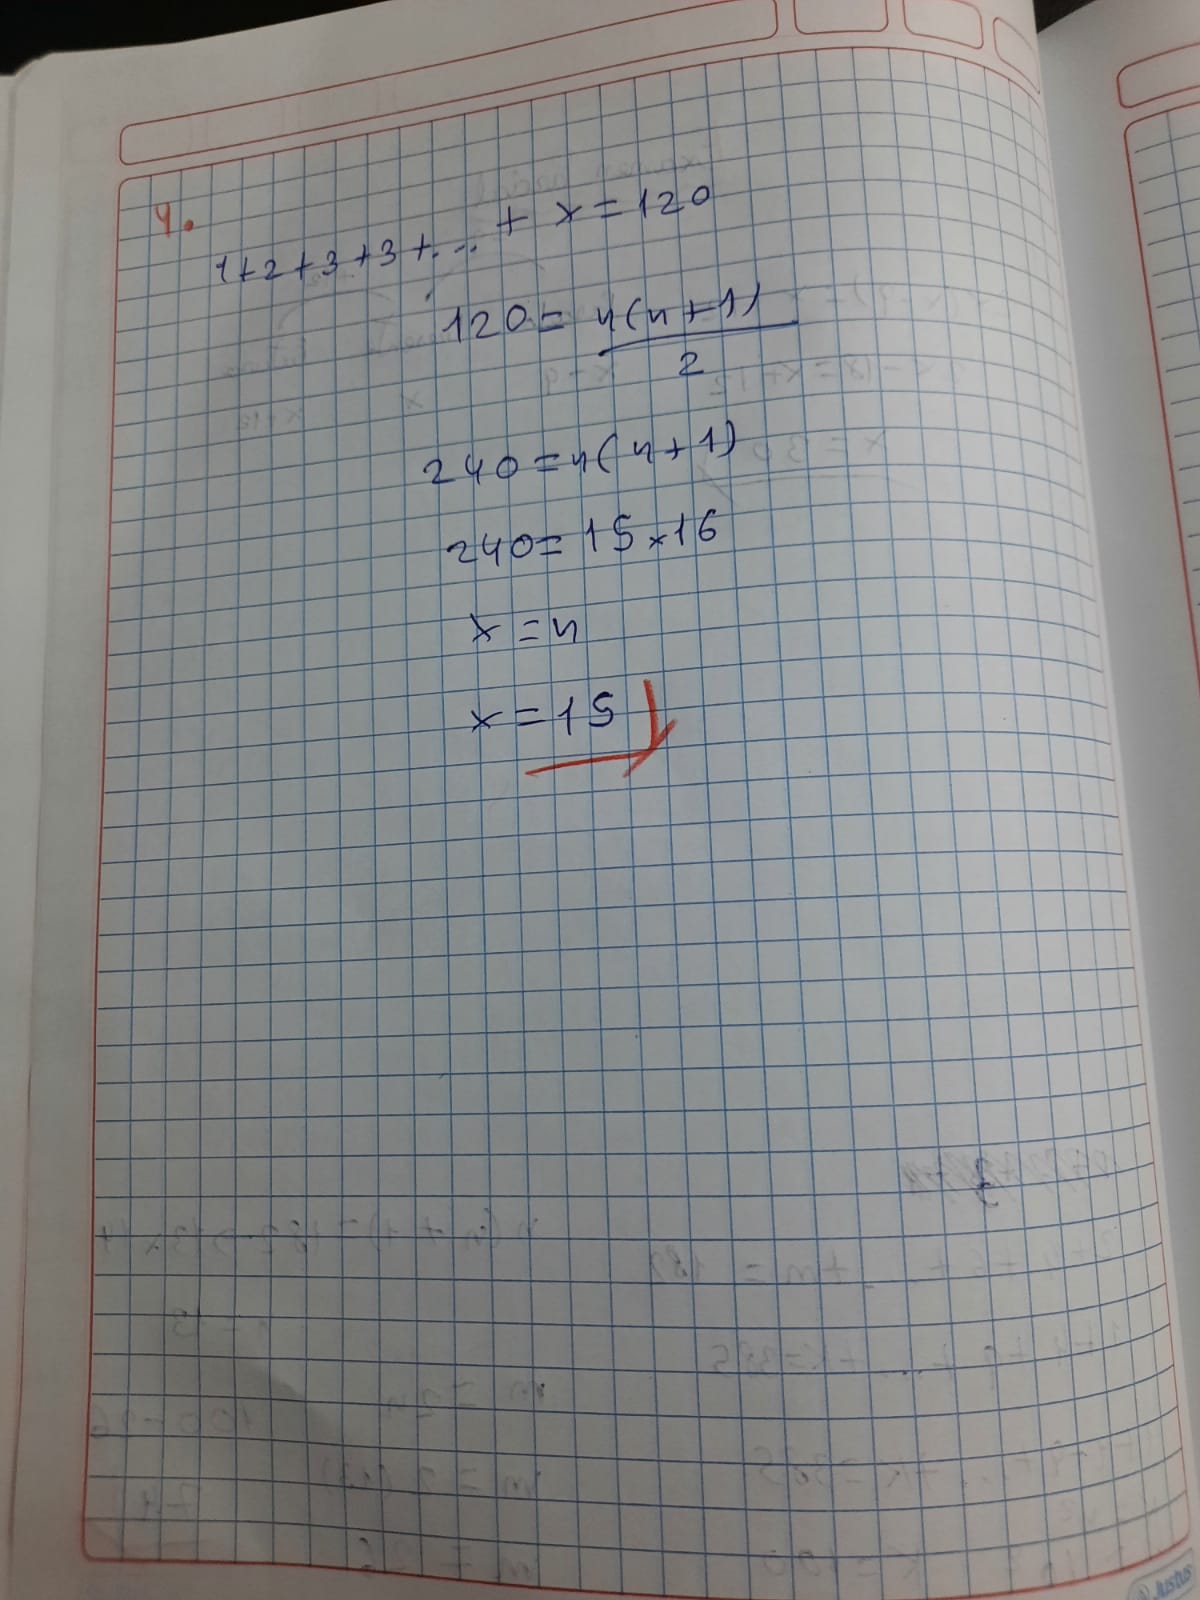 4.
1+2+3+3+... + x=120
120= n(n+1)
2
240=n(n+1)
240=15×16
x=n
x=15
Justus